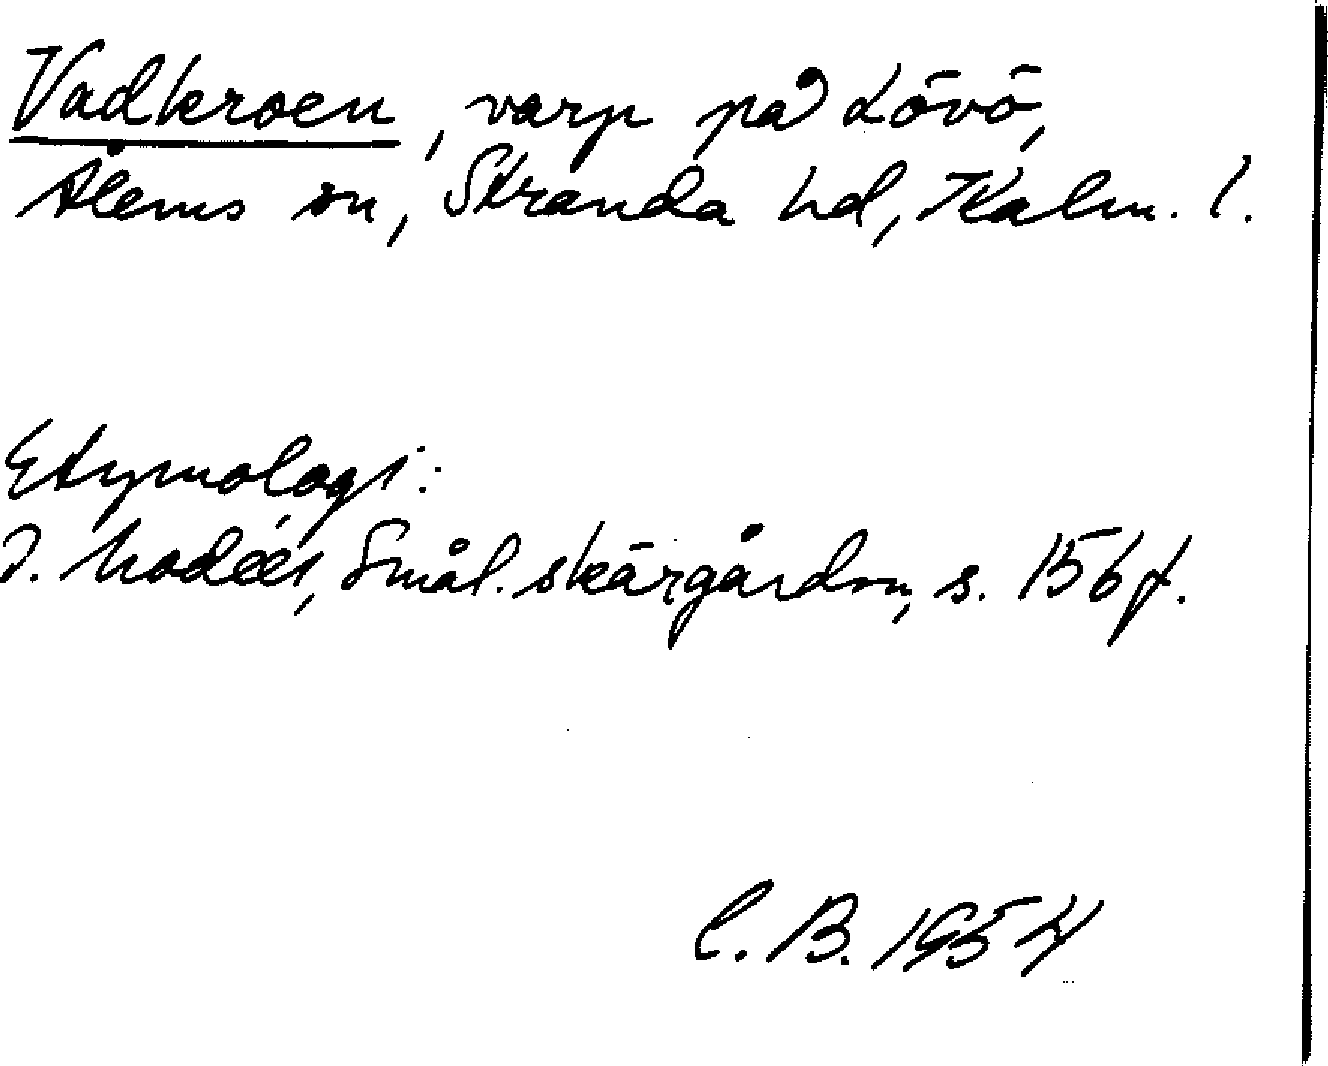 Vadkroen, varp på Lövö,
Ålems sn, Stranda hd, Kalm. l.
Etymologi:
I. Modéer, Smål. skärgårdsn, s. 156 f.
C. B. 1954